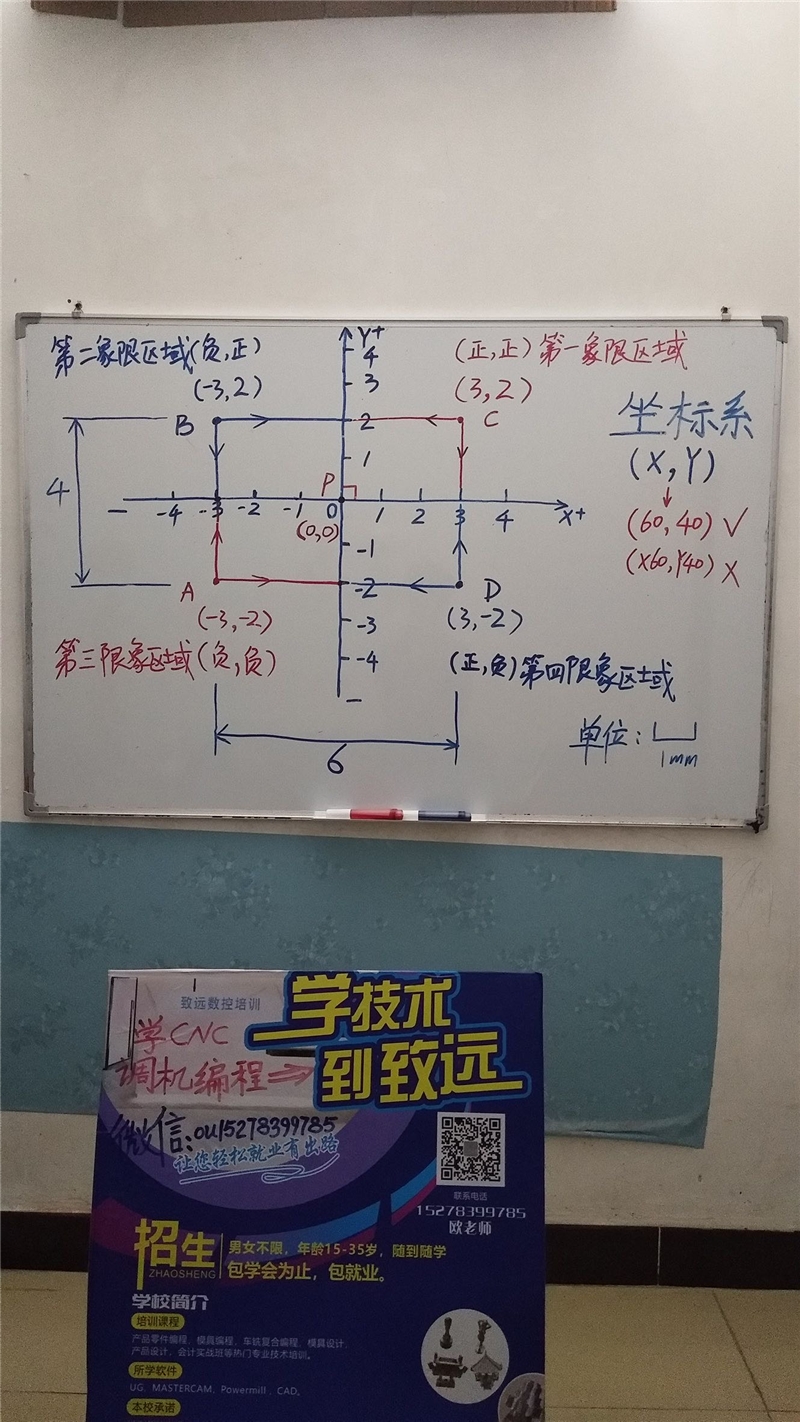 第二象限区域(负,正)
(-3,2)
Y+
(正,正)第一象限区域
(3,2)
4
3
2
1
B
C
坐标系
(X,Y)
(60,40)√
(X60,Y40)X
4
P
- -4 -3 -2 -1 0 1 2 3 4 X+
(0,0)
-1
-2
-3
-4
-
A
D
(-3,-2)
(3,-2)
第三限象区域(负,负)
(正,负)第四限象区域
6
单位:
1mm
致远数控培训
学技术
到致远
学CNC
调机编程⇒
微信:OU15278399785
让您轻松就业有出路
联系电话
15278399785
招生
ZHAOSHENG
男女不限，年龄15-35岁，随到随学
包学会为止，包就业。
学校简介
培训课程
产品零件编程、模具编程、车铣复合编程、模具设计、
产品设计、会计实战班等热门专业技术培训。
所学软件
UG、MASTERCAM、Powermill、CAD。
本校承诺